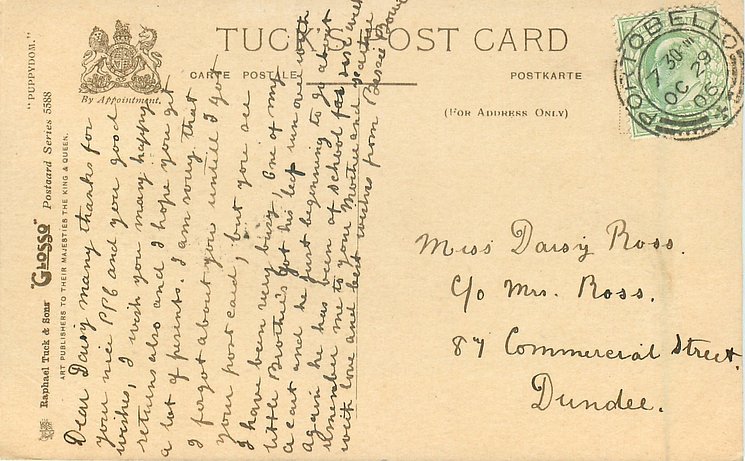 TUCK'S POST CARD
CARTE POSTALE
POSTKARTE
(FOR ADDRESS ONLY)
By Appointment.
"PUPPYDOM."
Raphael Tuck & Sons' "GLOSSO" Postcard Series 5588
ART PUBLISHERS TO THEIR MAJESTIES THE KING & QUEEN.
PORTOBELLO
7 30 PM
OC 29
06
Dear Daisy many thanks for
your nice PPC and you good
wishes, I wish you many happy
returns also and I hope you get
a lot of persents. I am sorry that
I forgot about you untill I got
your post card, but you see
I have been very busy, One of my
little Brothers got his leg run over with
a cart and he just beginning to go about
again he has been of school for six weeks
remember me to your Mother and
with love and best wishes from Bessie
Miss Daisy Ross.
c/o Mrs. Ross.
87 Commercial Street.
Dundee.